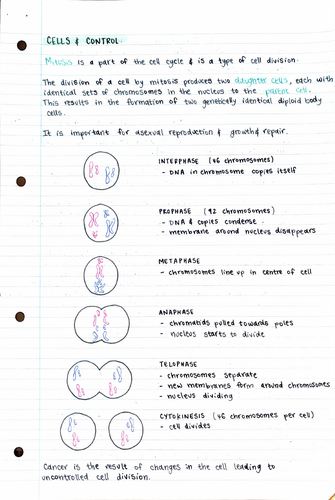 CELLS & CONTROL.
Mitosis is a part of the cell cycle & is a type of cell division.
The division of a cell by mitosis produces two daughter cells, each with
identical sets of chromosomes in the nucleus to the parent cell.
This results in the formation of two genetically identical diploid body
cells.
It is important for asexual reproduction & growth & repair.
INTERPHASE (46 chromosomes)
- DNA in chromosome copies itself
PROPHASE (92 chromosomes)
- DNA & copies condense
- membrane around nucleus disappears
METAPHASE
- chromosomes line up in centre of cell
ANAPHASE
- chromatids pulled towards poles
- nucleus starts to divide
TELOPHASE
- chromosomes separate
- new membranes form around chromosomes
- nucleus dividing
CYTOKINESIS (46 chromosomes per cell)
- cell divides
Cancer is the result of changes in the cell leading to
uncontrolled cell division.